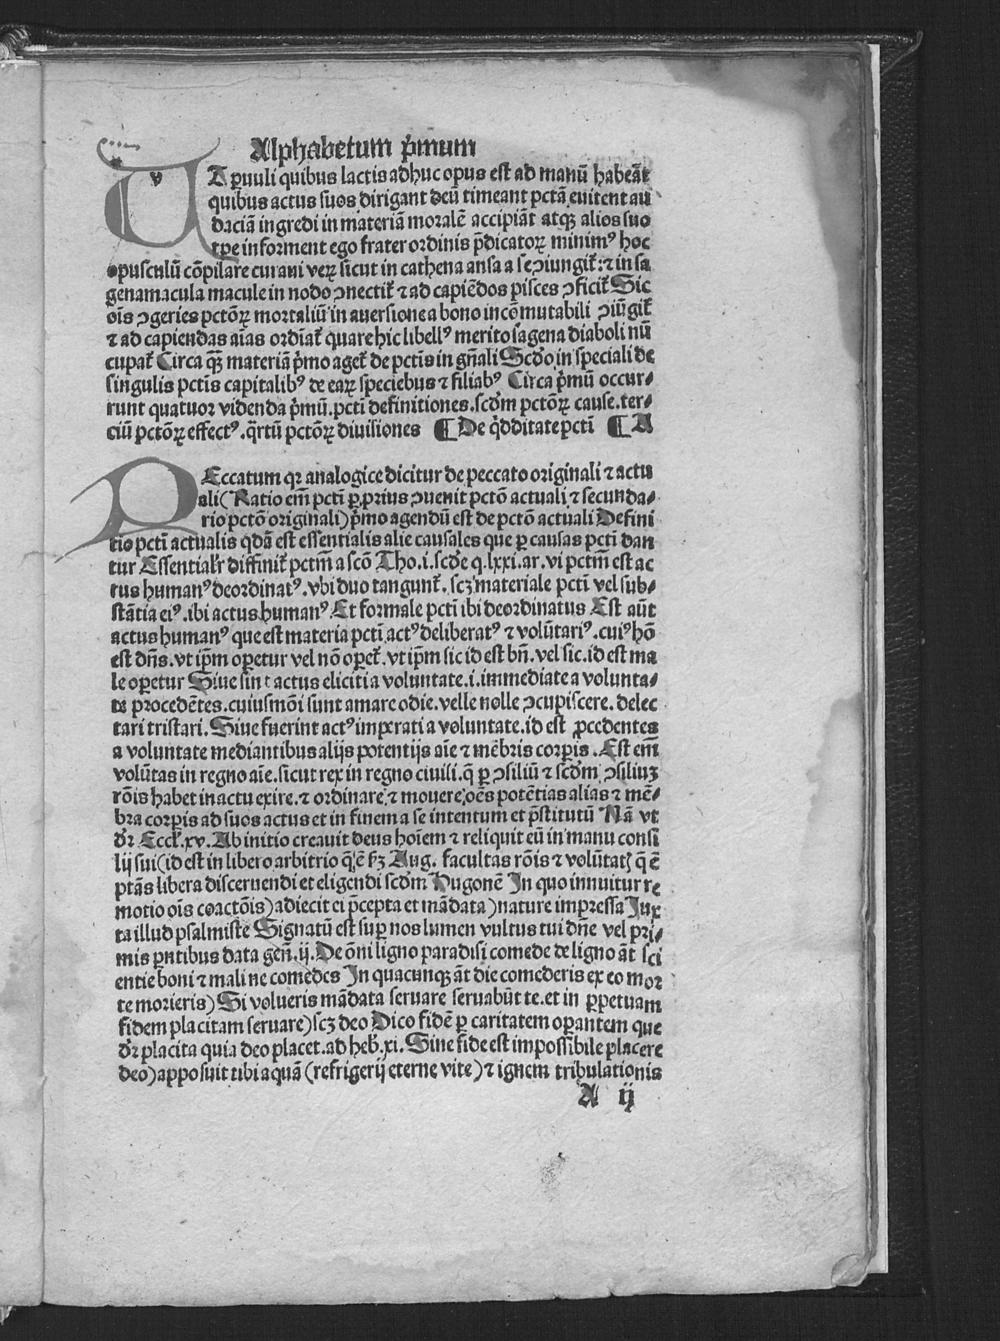 Alphabetum p̄mum
UT ꝑuuli quibus lactis adhuc opus est ad manū habeāt
quibus actus suos dirigant deū timeant pctā euitent au
daciā ingredi in materiā moralē accipiāt atqꝫ alios suo
tꝑe informent ego frater ordinis p̄dicatoꝝ minimꝰ hoc
opusculū cōpilare curaui veꝝ sicut in cathena ansa a se ꝯiungit᷑: ⁊ in sa
gena macula macule in nodo ꝯnectit᷑ ⁊ ad capiēdos pisces ꝯficit᷑ Sic
oīs ꝯgeries pctōꝝ mortaliū in auersione a bono incōmutabili ꝯiūgit᷑
⁊ ad capiendas aīas ordīat᷑ quare hic libellꝰ merito sagena diaboli nū
cupat᷑ Circa qꝫ materiā p̄mo aget᷑ de pctīs in gn̄ali Scd̄o in speciali de
singulis pctīs capitalibꝰ de eaꝝ speciebus ⁊ filiabꝰ Circa p̄mū occur⸗
runt quatuor videnda p̄mū.pctī definitiones.scd̄m pctōꝝ cause.ter⸗
ciū pctōꝝ effectꝰ.q̄rtū pctōꝝ diuisiones ¶ De q̄dditate pctī ¶ A
PEccatum qꝛ analogice dicitur de peccato originali ⁊ actu
ali (Ratio em̄ pctī ꝑ prius ꝯuenit pctō actuali ⁊ secunda⸗
rio pctō originali) p̄mo agendū est de pctō actuali Defini
tio pctī actualis q̄dā est essentialis alie causales que ꝑ causas pctī dan
tur Essentialr̄ diffinit᷑ pctm̄ a scō Tho.i.scd̄e q.lxxi.ar.vi pctm̄ est ac
tus humanꝰ deordinatꝰ.vbi duo tangunt᷑.scꝫ materiale pctī vel sub⸗
stātia eiꝰ.ibi actus humanꝰ Et formale pctī ibi deordinatus Est aūt
actus humanꝰ que est materia pctī actꝰ deliberatꝰ ⁊ volūtariꝰ.cuiꝰ hō
est dn̄s.vt ip̄m oꝑetur vel nō oꝑet᷑.vt ip̄m sic id est bn̄.vel sic.id est ma
le oꝑetur Siue sint actus eliciti a voluntate.i.immediate a volunta⸗
te procedētes.cuiusmōi sunt amare odie.velle nolle ꝯcupiscere.delec
tari tristari.Siue fuerint actꝰ imperati a voluntate.id est ꝓcedentes
a voluntate mediantibus alijs potentijs aīe ⁊ mēbris corꝑis.Est em̄
volūtas in regno aīe.sicut rex in regno ciuili.q̄ ꝑ ꝯsiliū ⁊ scd̄m ꝯsiliuꝫ
rōis habet in actu exire.⁊ ordinare ⁊ mouere oēs potētias alias ⁊ mē⸗
bra corꝑis ad suos actus et in finem a se intentum et p̄stitutū Nā vt
dr̄ Eccl̄.xv.Ab initio creauit deus hoīem ⁊ reliquit eū in manu consi
lij sui (id est in libero arbitrio q̄ ē ẜꝫ Aug. facultas rōis ⁊ volūtatꝭ q̄ ē
ptās libera discernendi et eligendi scd̄m Hugonē In quo innuitur re
motio oīs coactōis) adiecit ei p̄cepta et mādata) nature impressa Jux
ta illud psalmiste Signatū est suꝑ nos lumen vultus tui dn̄e vel pri⸗
mis pn̄tibus data gen̄.ij. De ōni ligno paradisi comede de ligno āt sci
entie boni ⁊ mali ne comedes In quacunqꝫ āt die comederis ex eo mor
te morieris) Si volueris mādata seruare seruabūt te.et in ꝑpetuam
fidem placitam seruare) scꝫ deo Dico fidē ꝑ caritatem oꝑantem que
dr̄ placita quia deo placet.ad heb̄.xi.Sine fide est impossibile placere
deo) apposuit tibi aquā (refrigerij eterne vite) ⁊ ignem tribulationis
A ij